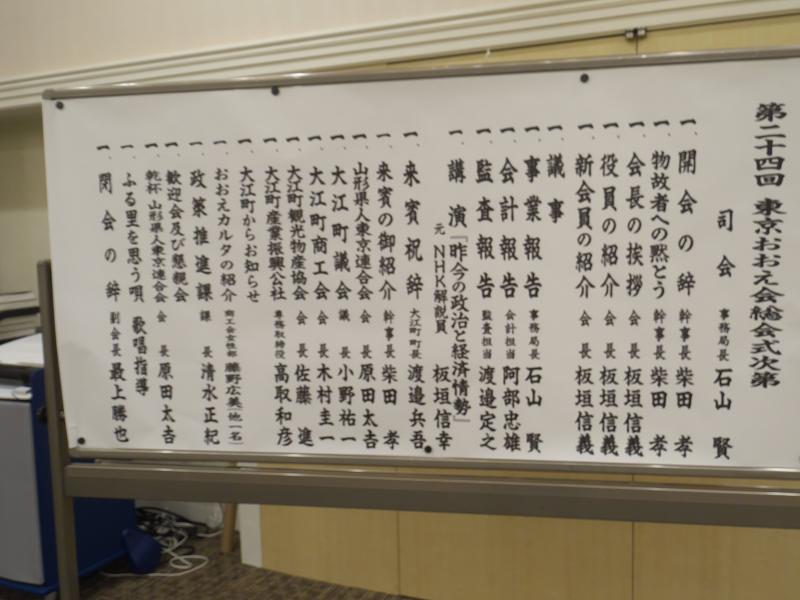 第二十四回 東京おおえ会総会式次第
司会 事務局長 石山 賢
一、開会の辞 幹事長 柴田 孝
一、物故者への黙とう 幹事長 柴田 孝
一、会長の挨拶 会長 板垣信義
一、役員の紹介 会長 板垣信義
一、新会員の紹介 会長 板垣信義
一、議事
事業報告 事務局長 石山 賢
会計報告 会計担当 阿部忠雄
監査報告 監査担当 渡邉定之
一、講演「昨今の政治と経済情勢」
元 NHK解説員 板垣信幸
一、来賓祝辞 大江町町長 渡邉兵吾
一、来賓の御紹介 幹事長 柴田 孝
山形県人東京連合会 会長 原田太吉
大江町議会 議長 小野祐一
大江町商工会 会長 木村圭一
大江町観光物産協会 会長 佐藤 進
大江町産業振興公社 専務取締役 高取和彦
一、大江町からお知らせ
おおえカルタの紹介 商工会女性部 藤野広美(他一名)
政策推進課 課長 清水正紀
一、歓迎会及び懇親会
乾杯 山形県人東京連合会 会長 原田太吉
一、ふる里を思う唄 歌唱指導
一、閉会の辞 副会長 最上勝也